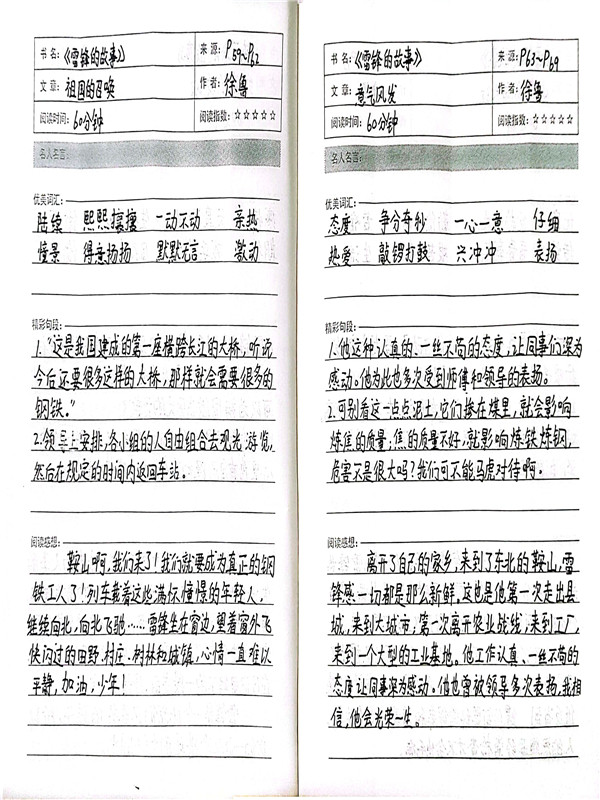 书 名：《雷锋的故事》 来 源：P59~P62
文 章：祖国的召唤 作 者：徐鲁
阅读时间：60分钟 阅读指数：☆☆☆☆☆
名人名言：
优美词汇：
陆续 熙熙攘攘 一动不动 亲热
憧景 得意扬扬 默默无言 激动
精彩句段：
1."这是我国建成的第一座横跨长江的大桥，听说
今后还要很多这样的大桥，那样就会需要很多的
钢铁。"
2.领导上安排，各小组的人自由组合去观光游览，
然后在规定的时间内返回车站。
阅读感想：
鞍山啊，我们来了！我们就要成为真正的钢
铁工人了！列车载着这些满怀憧憬的年轻人，
继续向北，向北飞驰……雷锋坐在窗边，望着窗外飞
快闪过的田野、村庄、树林和城镇，心情一直难以
平静，加油，少年！
书 名：《雷锋的故事》 来 源：P63~P69
文 章：意气风发 作 者：徐鲁
阅读时间：60分钟 阅读指数：☆☆☆☆☆
名人名言：
优美词汇：
态度 争分夺秒 一心一意 仔细
热爱 敲锣打鼓 兴冲冲 表扬
精彩句段：
1.他这种认真的、一丝不苟的态度，让同事们深为
感动。他为此也多次受到师傅和领导的表扬。
2.可别看这一点点泥土，它们掺在煤里，就会影响
炼焦的质量；焦的质量不好，就影响炼铁炼钢，
危害不是很大吗？我们可不能马虎对待啊。
阅读感想：
离开了自己的家乡，来到了东北的鞍山，雷
锋感一切都是那么新鲜。这也是他第一次走出县
城，来到大城市；第一次离开农业战线，来到工厂，
来到一个大型的工业基地。他工作认真、一丝不苟的
态度让同事深为感动。他也曾被领导多次表扬，我相
信，他会光荣一生。